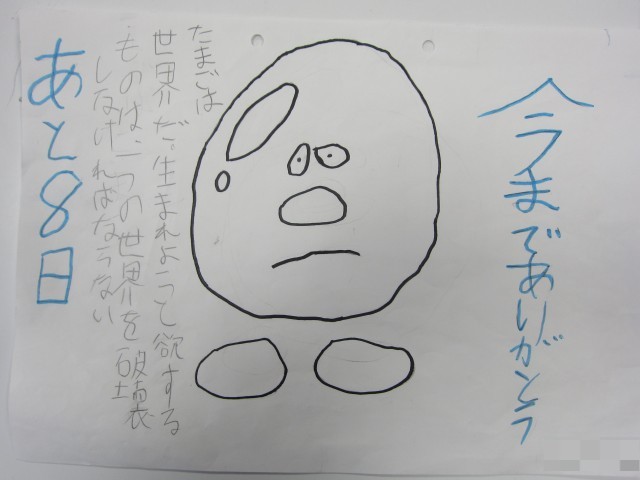 今まであリがとう
たまごは
世界だ。生まれようと欲する
ものは、一つの世界を破壊
しなければならない
あと8日